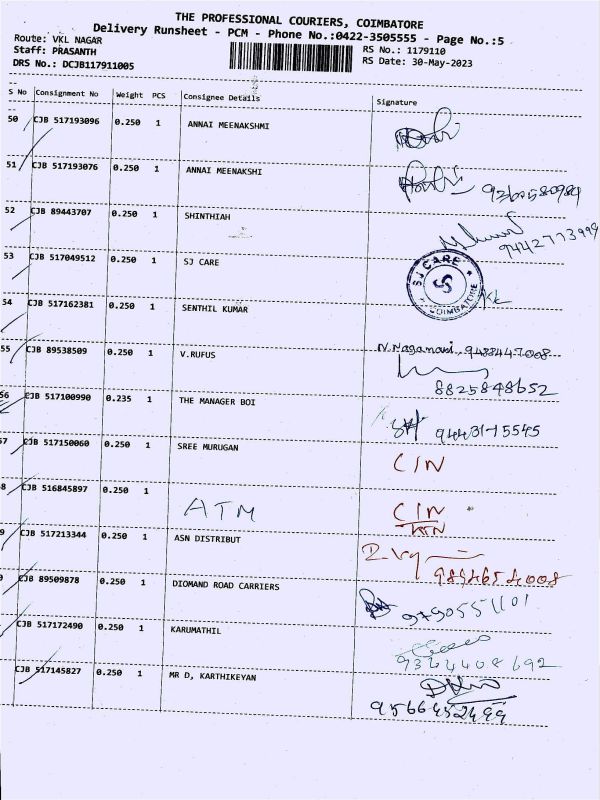 THE PROFESSIONAL COURIERS, COIMBATORE
Delivery Runsheet - PCM - Phone No.:0422-3505555 - Page No.:5
Route: VKL NAGAR
RS No.: 1179110
Staff: PRASANTH
RS Date: 30-May-2023
DRS No.: DCJB117911005
S No Consignment No Weight PCS Consignee Details Signature
50 CJB 517193096 0.250 1 ANNAI MEENAKSHMI
51 CJB 517193076 0.250 1 ANNAI MEENAKSHI
52 CJB 89443707 0.250 1 SHINTHIAH
9442773999
53 CJB 517049512 0.250 1 SJ CARE
SJ CARE
COIMBATORE
54 CJB 517162381 0.250 1 SENTHIL KUMAR
55 CJB 89538509 0.250 1 V.RUFUS
8825848652
56 CJB 517100990 0.235 1 THE MANAGER BOI
9443175545
57 CJB 517150060 0.250 1 SREE MURUGAN CIN
8 CJB 516845897 0.250 1 ATM CIN
9 CJB 517213344 0.250 1 ASN DISTRIBUT
9894654008
CJB 89509878 0.250 1 DIOMAND ROAD CARRIERS
9790551101
CJB 517172490 0.250 1 KARUMATHIL
9364408692
CJB 517145827 0.250 1 MR D, KARTHIKEYAN
9566452499